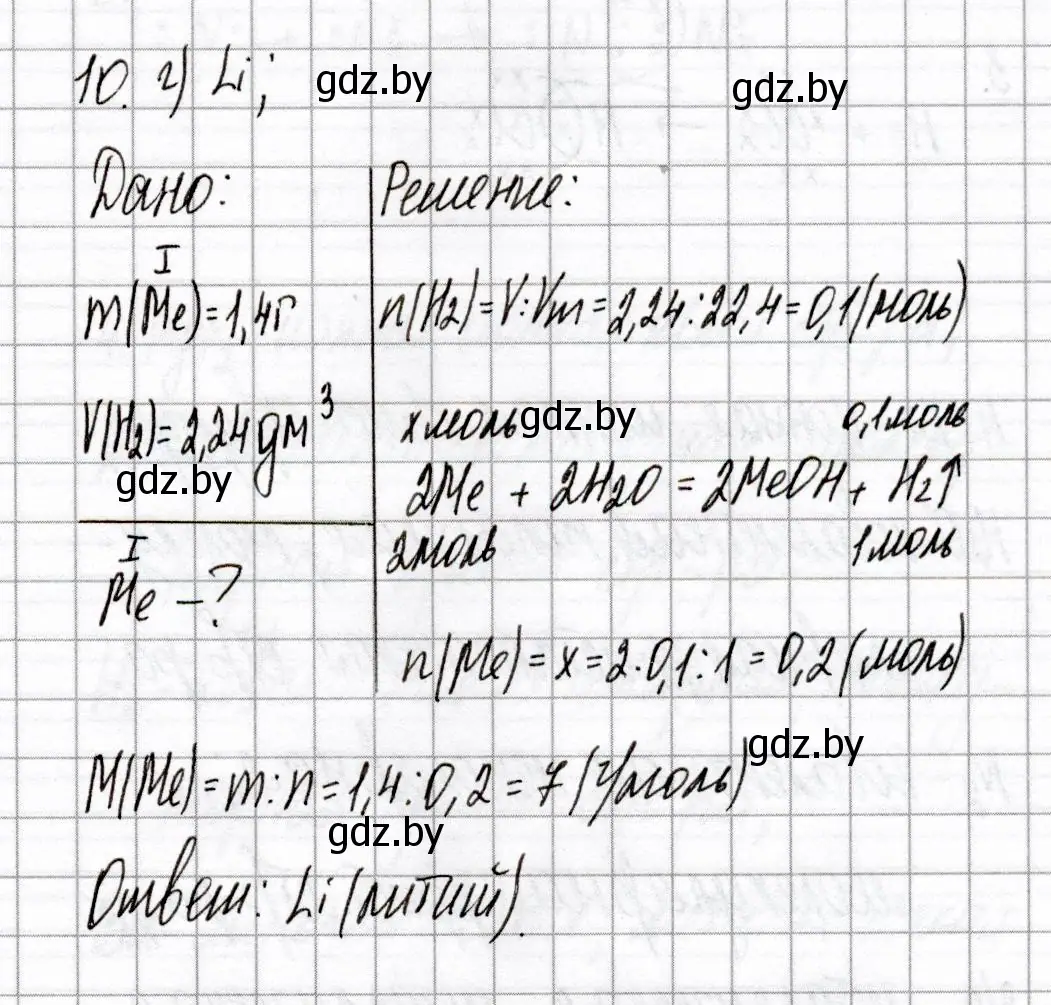 10. г) Li;
gdz.by
gdz.by
Дано:
I
m(Me)=1,4г
V(H₂)=2,24 дм³
gdz.by
I
Me -?
Решение:
n(H₂)=V:Vm=2,24:22,4=0,1(моль)
x моль gdz.by 0,1 моль
2Me + 2H₂O = 2MeOH + H₂↑
2 моль 1 моль
n(Me)=x=2·0,1:1=0,2(моль)
gdz.by
M(Me)=m:n=1,4:0,2=7(г/моль)
gdz.by
Ответ: Li (литий).